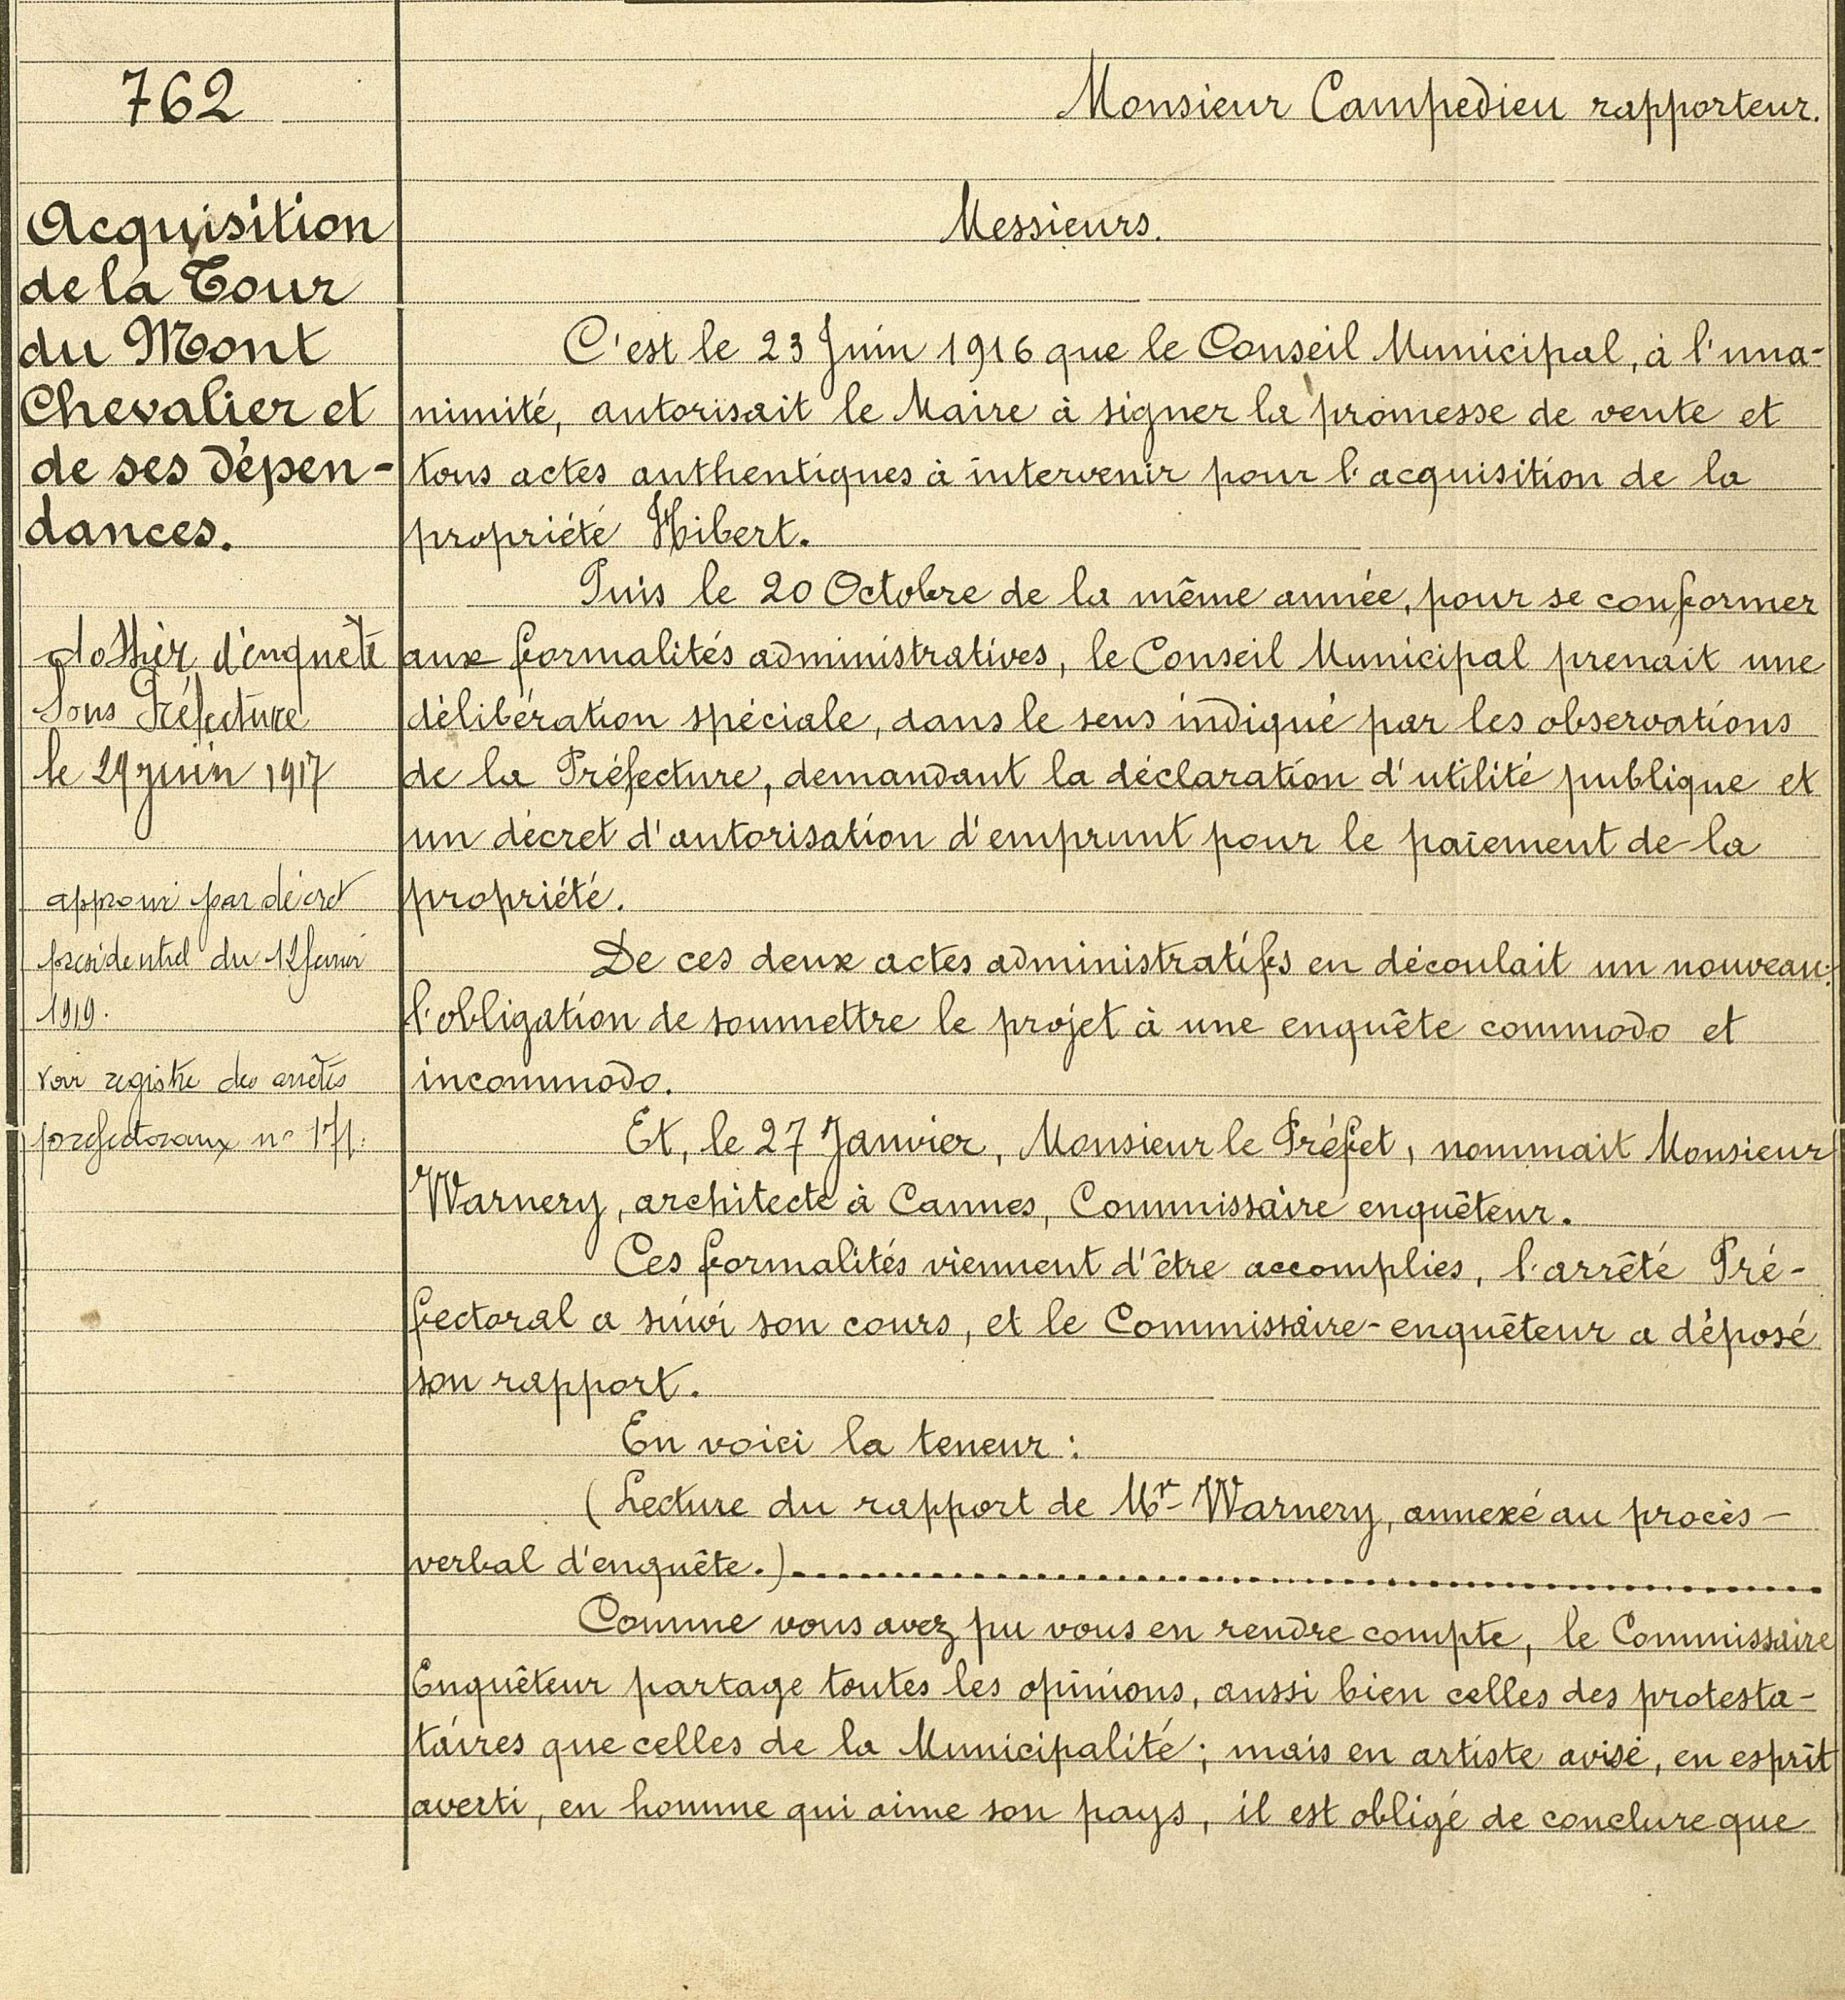 762
Acquisition
de la Tour
du Mont
Chevalier et
de ses dépen-
dances.
dossier d'enquête
Sous Préfecture
le 29 juin 1917
approuvé par décret
presidentiel du 12 fevrier
1919.
Voir registre des arrêtés
prefectoraux n°
Monsieur Campedieu rapporteur.
Messieurs.
C'est le 23 Juin 1916 que le Conseil Municipal, à l'una-
nimité, autorisait le Maire à signer la promesse de vente et
tous actes authentiques à intervenir pour l'acquisition de la
propriété Hibert.
Puis le 20 Octobre de la même année, pour se conformer
aux formalités administratives, le Conseil Municipal prenait une
délibération spéciale, dans le sens indiqué par les observations
de la Préfecture, demandant la déclaration d'utilité publique et
un décret d'autorisation d'emprunt pour le paiement de la
propriété.
De ces deux actes administratifs en découlait un nouveau:
l'obligation de soumettre le projet à une enquête commodo et
incommodo.
Et, le 27 Janvier, Monsieur le Préfet, nommait Monsieur
Warnery, architecte à Cannes, Commissaire enquêteur.
Ces formalités viennent d'être accomplies, l'arrêté Pré-
fectoral a suivi son cours, et le Commissaire-enquêteur a déposé
son rapport.
En voici la teneur :
(Lecture du rapport de Mr Warnery, annexé au procès-
verbal d'enquête.)..................................................
Comme vous avez pu vous en rendre compte, le Commissaire
Enquêteur partage toutes les opinions, aussi bien celles des protesta-
taires que celles de la Municipalité; mais en artiste avisé, en esprit
averti, en homme qui aime son pays, il est obligé de conclure que